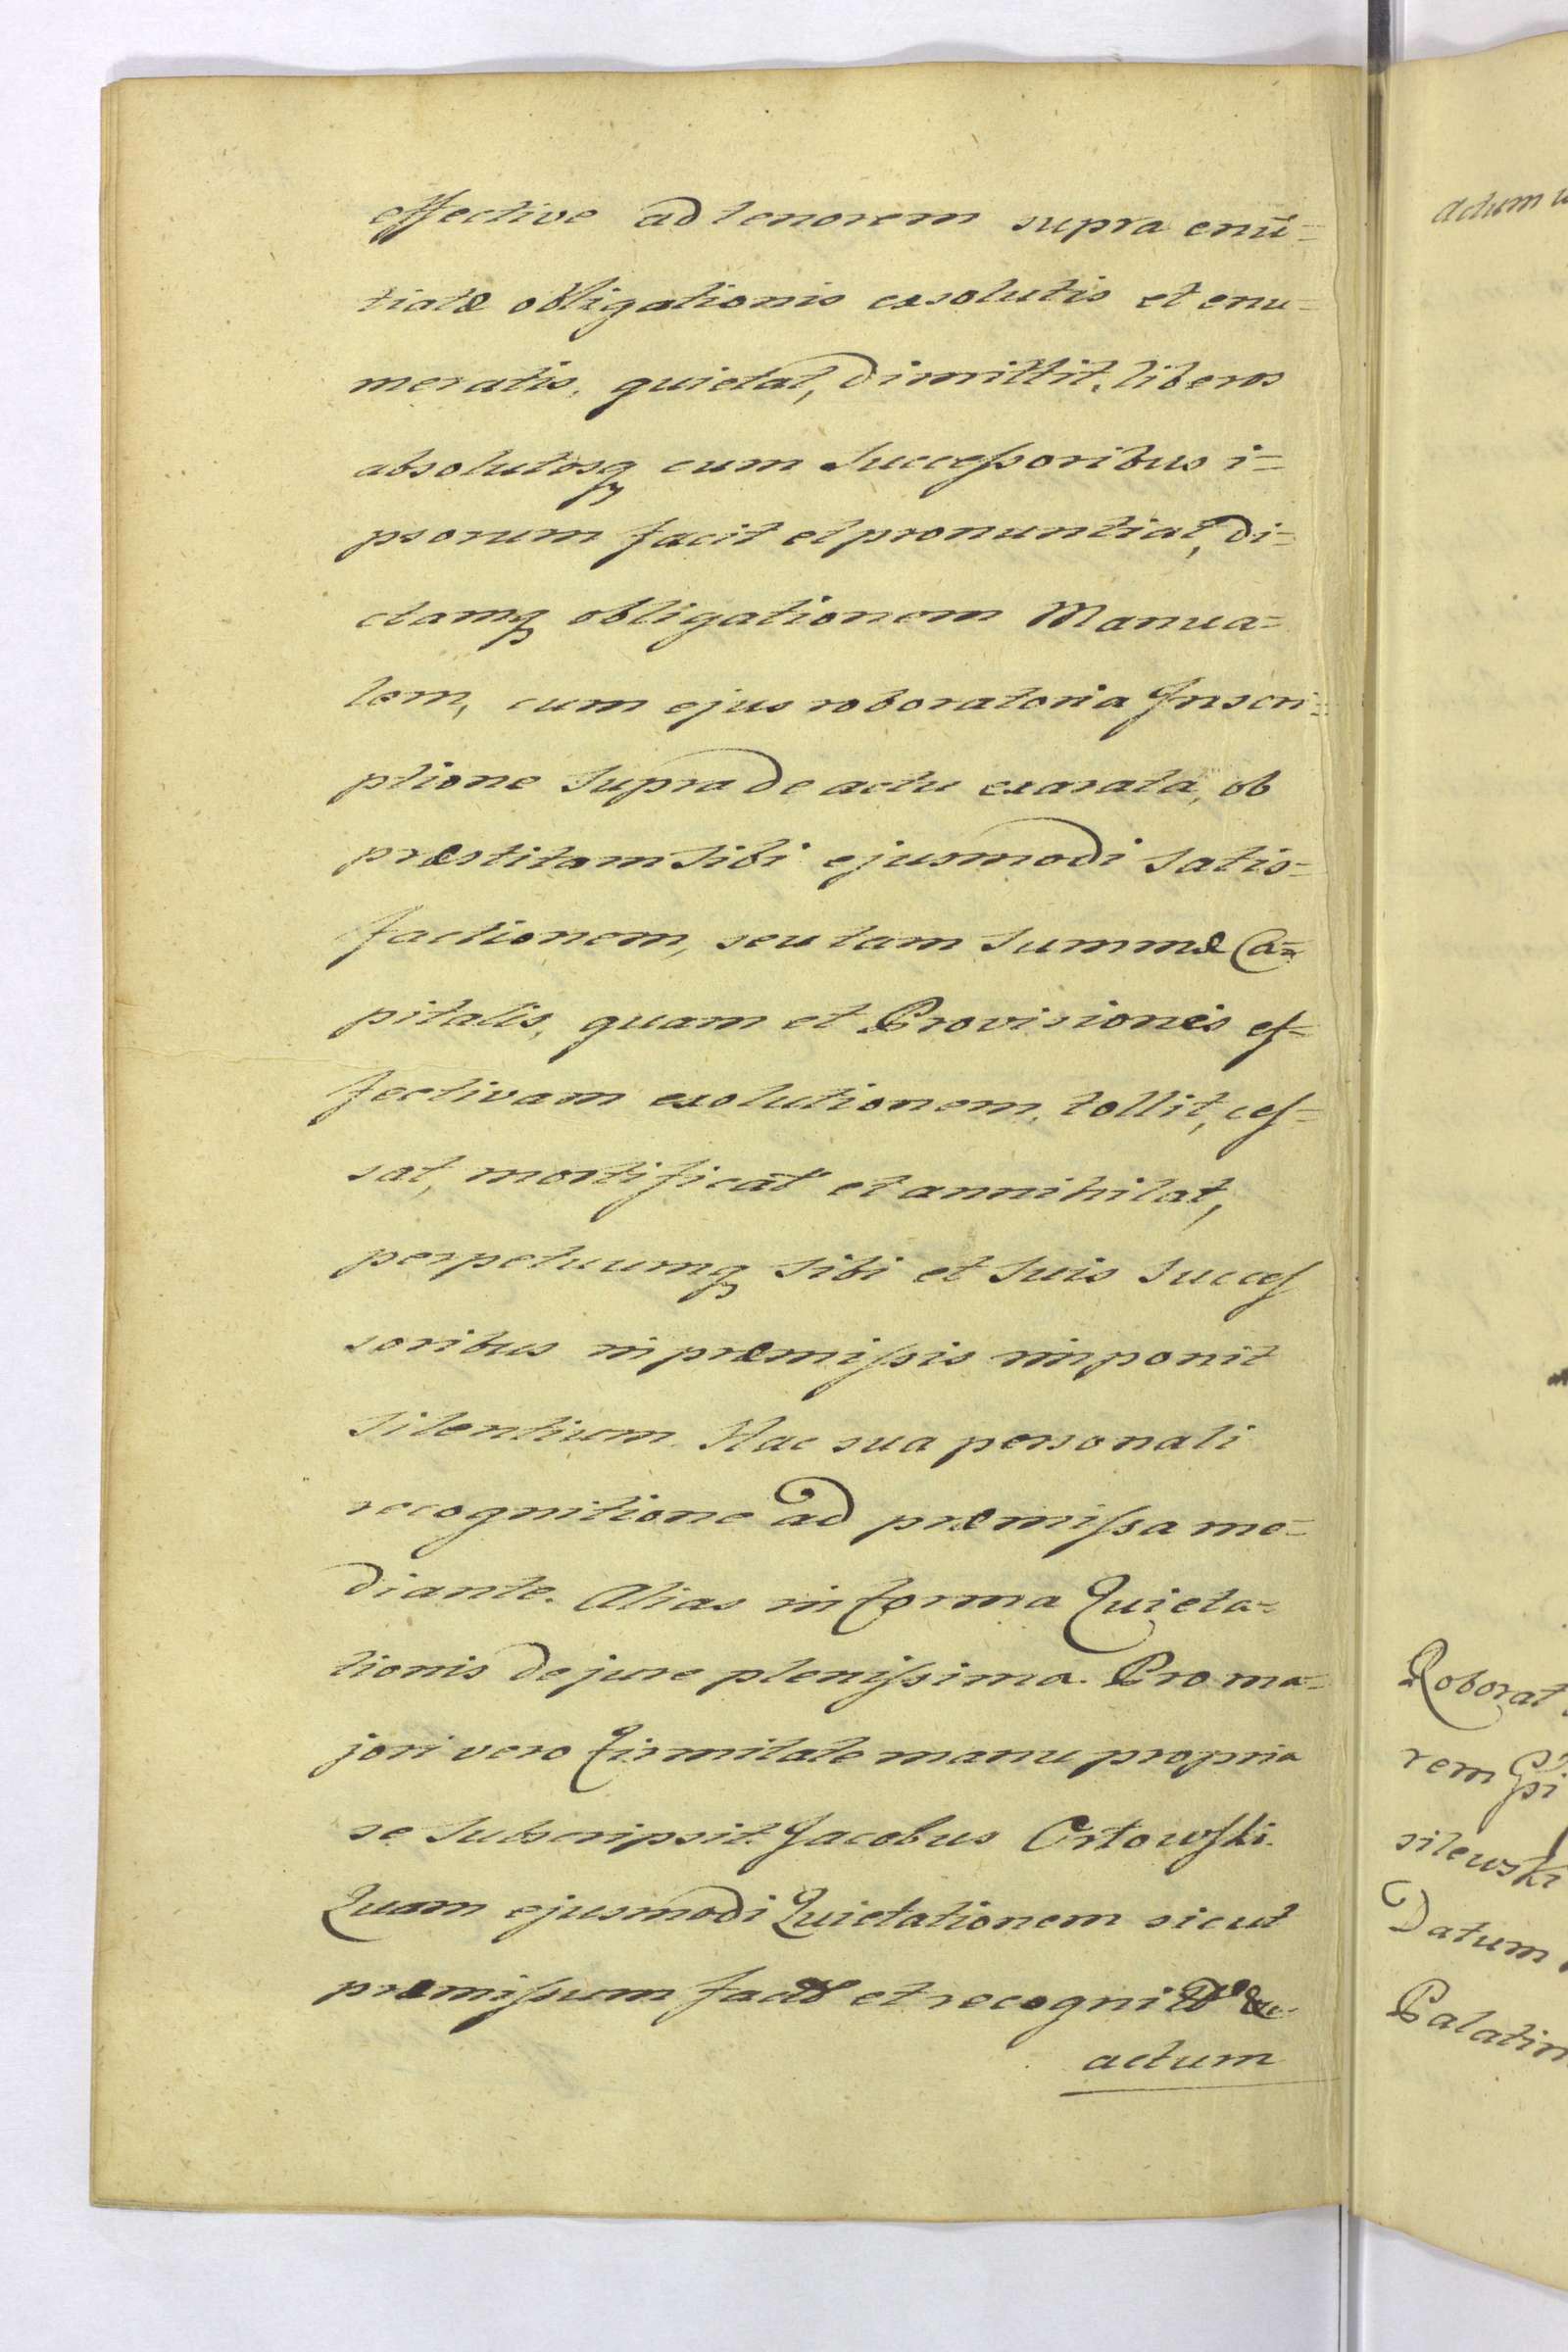 effective ad tenorem supra enū=
tiatæ obligationis exsolutis et enu=
meratis, quietat, dimittit, liberos
absolutosq cum Succeſsoribus i=
psorum facit et pronuntiat, di=
ctamq obligationem Manua=
lem, cum ejus roboratoria Inscri=
ptione Supra de actu exarata, ob
præstitam Sibi ejusmodi Satis=
factionem, seu tam Summæ Ca=
pitalis, quam et Provisionis ef=
fectivam exolutionem, tollit, ceſ=
sat, mortificat et annihilat,
perpetuumq Sibi et Suis Succeſ
soribus in præmiſsis imponit
Silentium. Hac sua personali
recognitione ad præmiſsa me=
diante. Alias in forma Quieta=
tionis de jure pleniſsima. Pro ma=
jori vero firmitate manu propria
se Subscripsit. Jacobus Orłowſki.
Quam ejusmodi Quietationem sicut
præmiſsum facit et recognit
actum
actum
Roborat
rem
silewski
Datum
Palatin